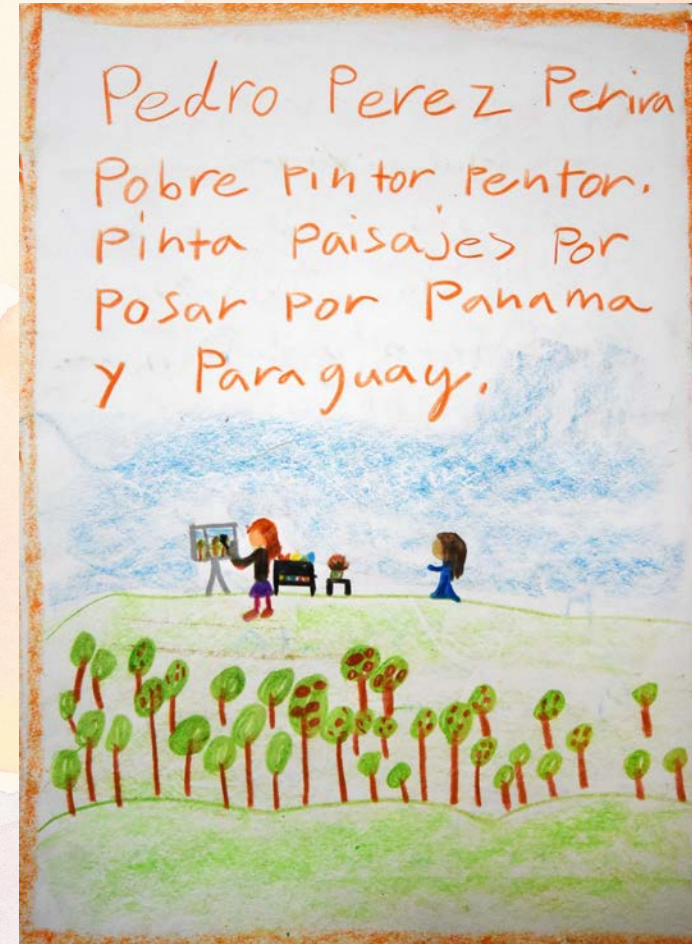 Pedro Perez Perira
Pobre pintor, pentor.
pinta paisajes por
posar por Panama
y Paraguay.